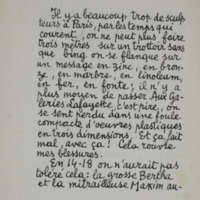 Il y a beaucoup trop de sculp-
teurs à Paris, par les temps qui
courent, on ne peut plus faire
trois mètres sur un trottoir sans
que bing on se flanque sur
un message en zinc, en bron-
ze, en marbre, en linoleum,
en fer, en fonte; il n'y a
plus moyen de passer aux Ga-
leries Lafayette, c'est pire, on
se sent perdu dans une foule
compacte d'œuvres plastiques
en trois dimensions. Et ça fait
mal, avec ça! Cela rouvre
mes blessures.
En 14-18 on n'aurait pas
toléré cela: la grosse Bertha
et la mitrailleuse Maxim au-